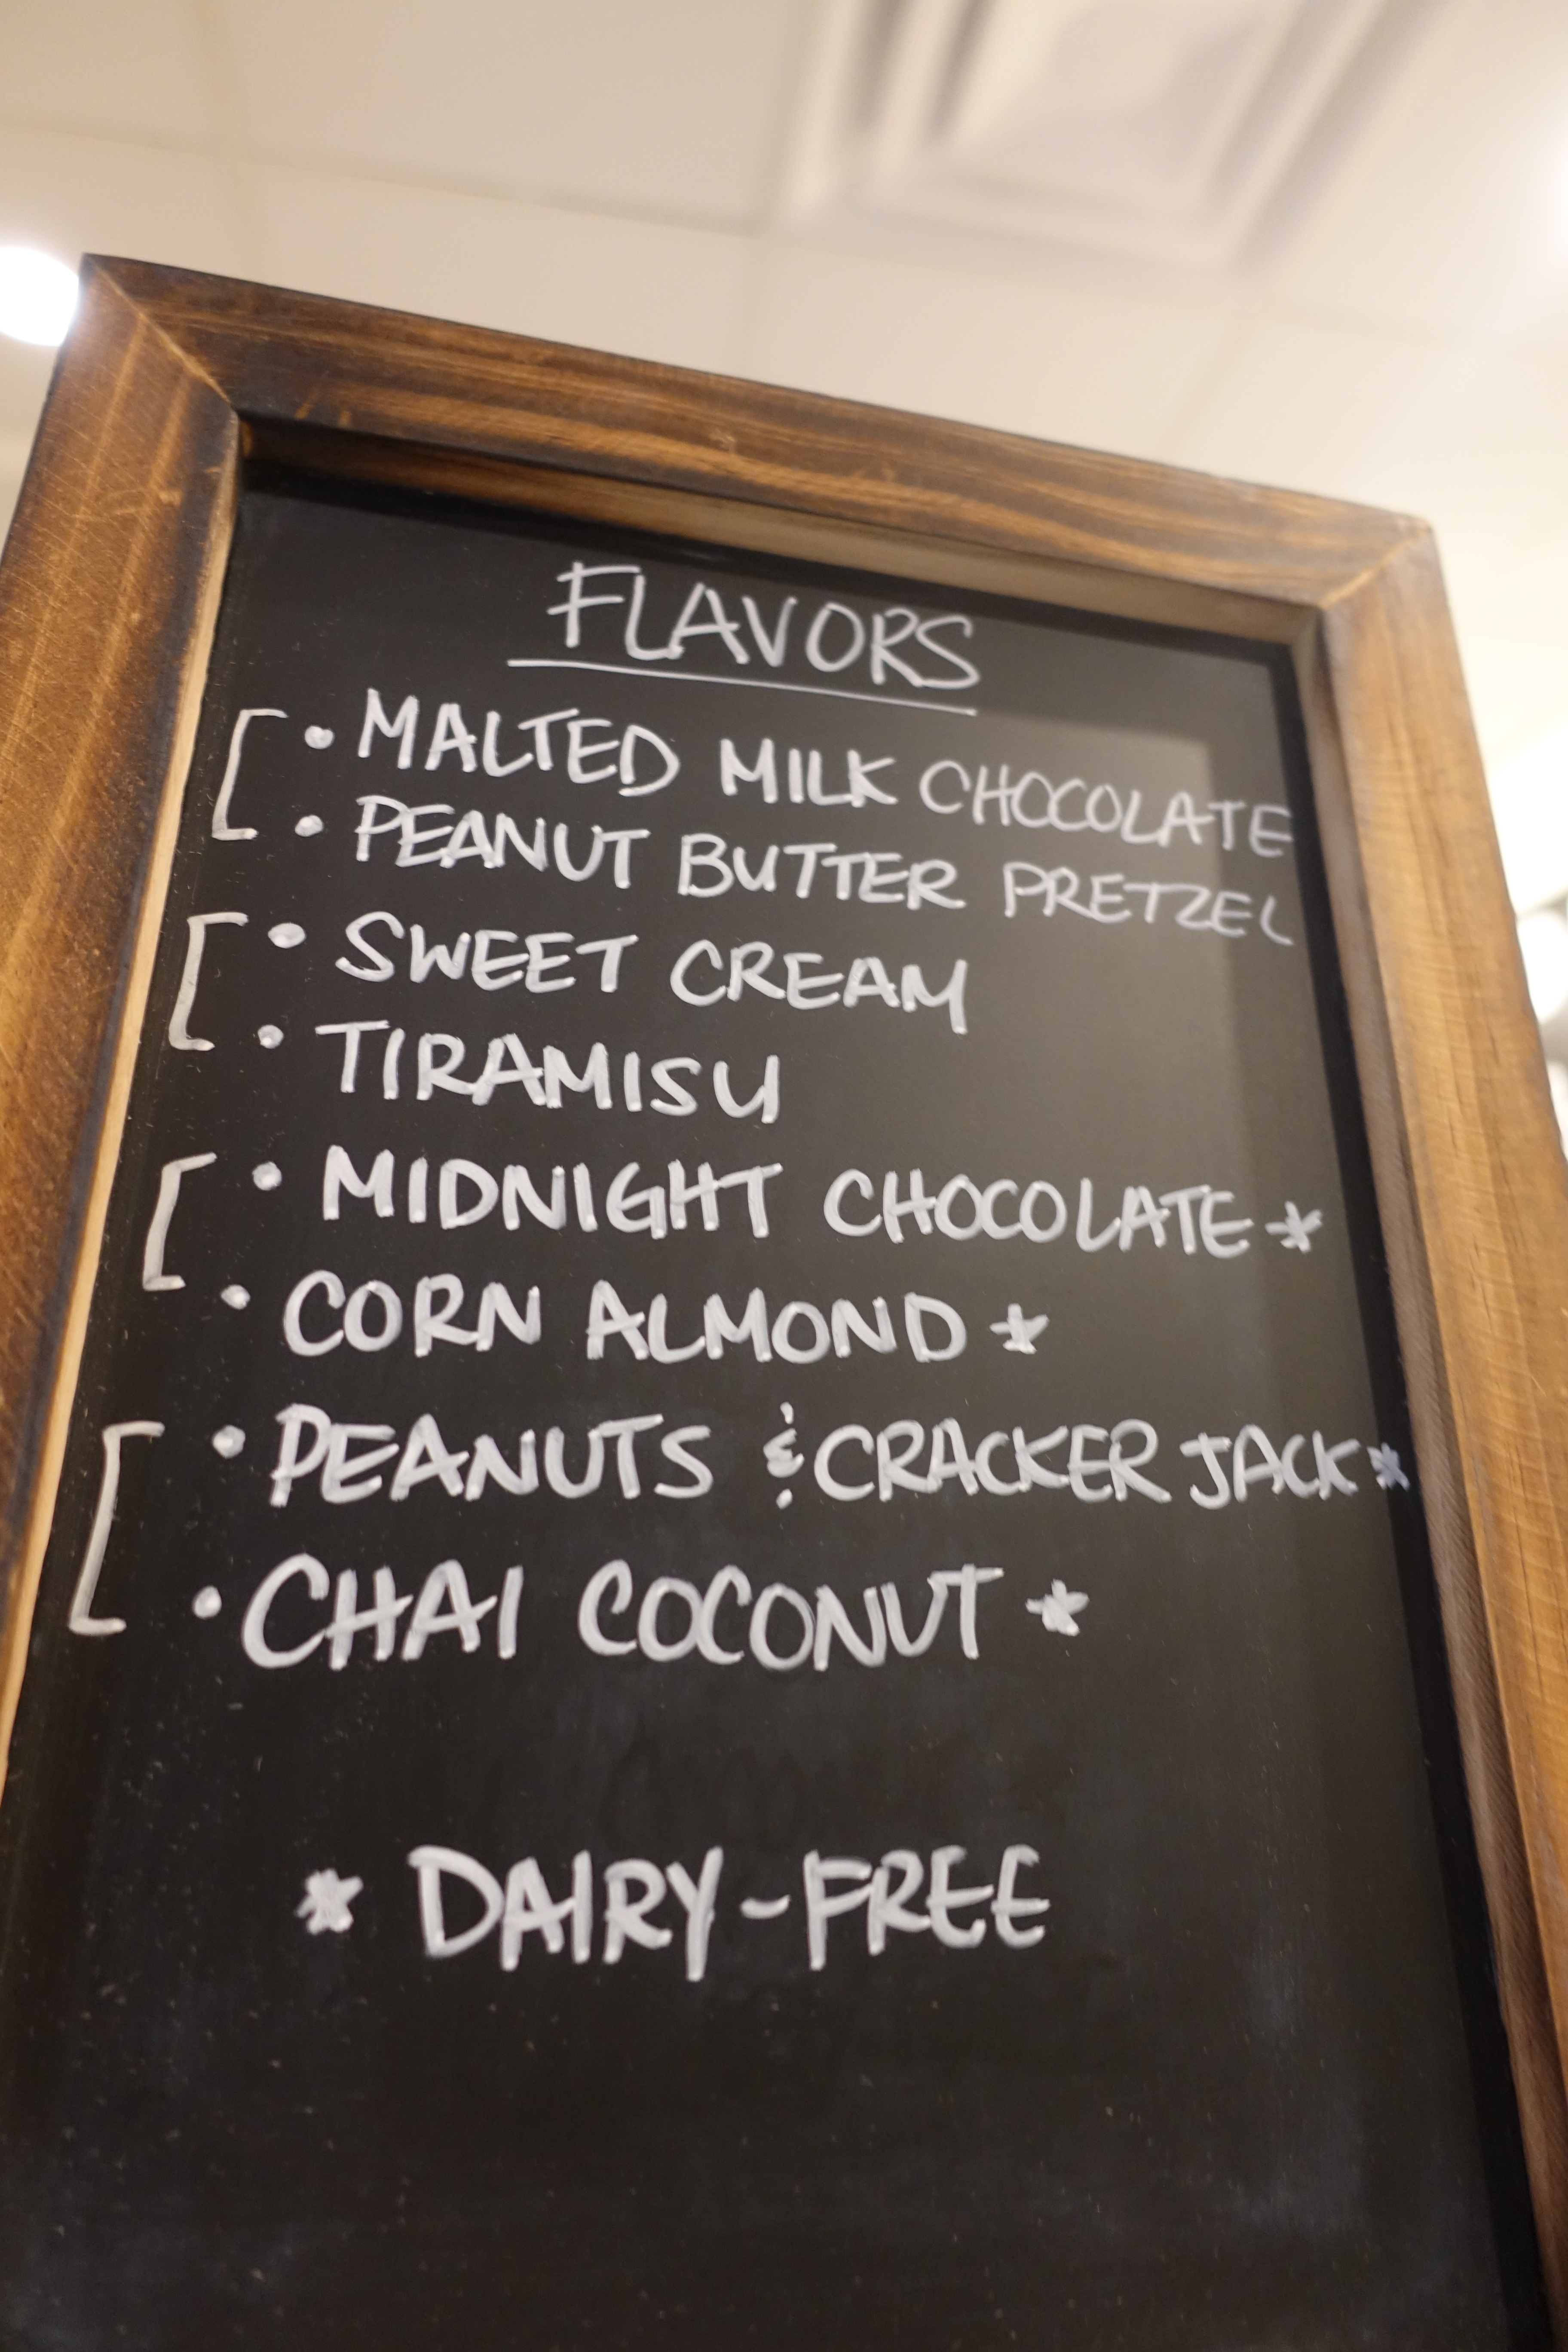 FLAVORS
• MALTED MILK CHOCOLATE
• PEANUT BUTTER PRETZEL
• SWEET CREAM
• TIRAMISU
• MIDNIGHT CHOCOLATE *
• CORN ALMOND *
• PEANUTS & CRACKER JACK *
• CHAI COCONUT *
* DAIRY-FREE